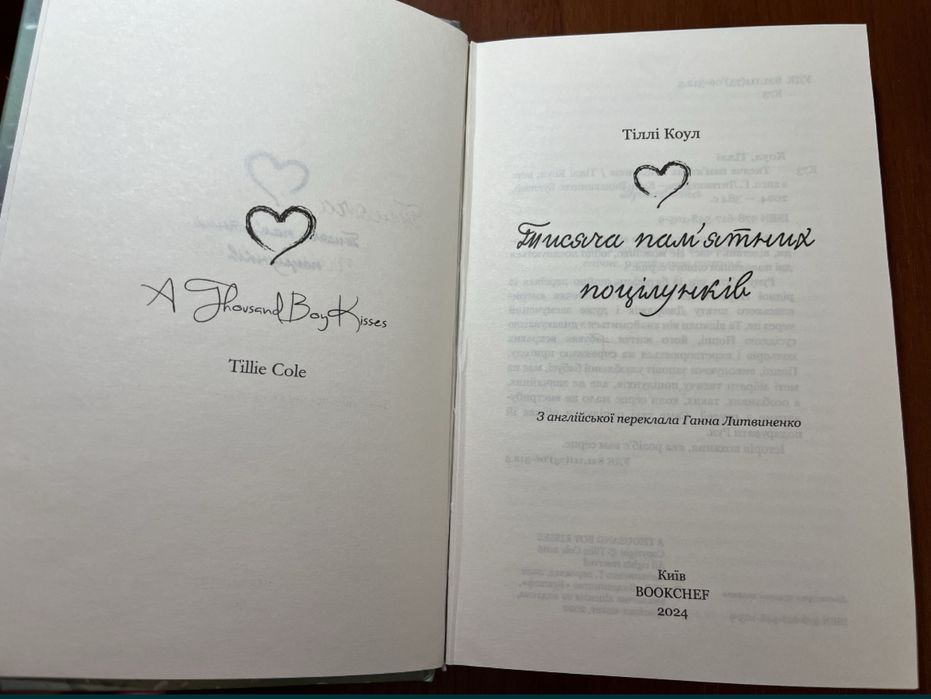 A Thousand Boy Kisses
Tillie Cole
Тіллі Коул
Тисяча пам'ятних
поцілунків
З англійської переклала Ганна Литвиненко
Київ
BOOKCHEF
2024